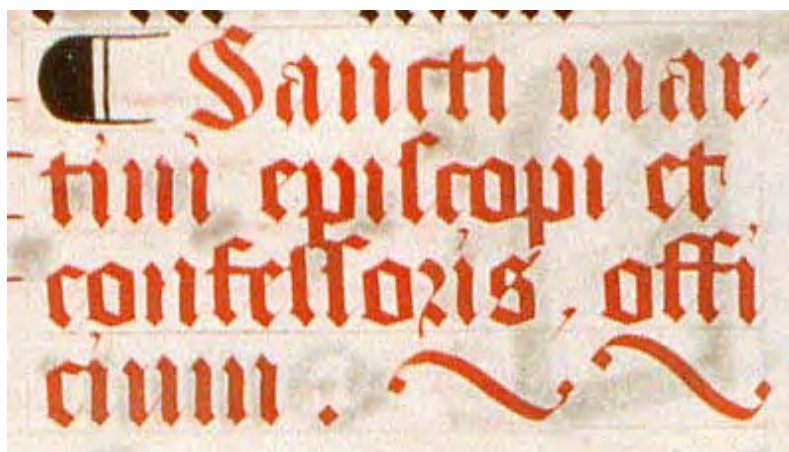 ¶ Sancti mar
tini epiſcopi et
confeſſoris, offi
cium.